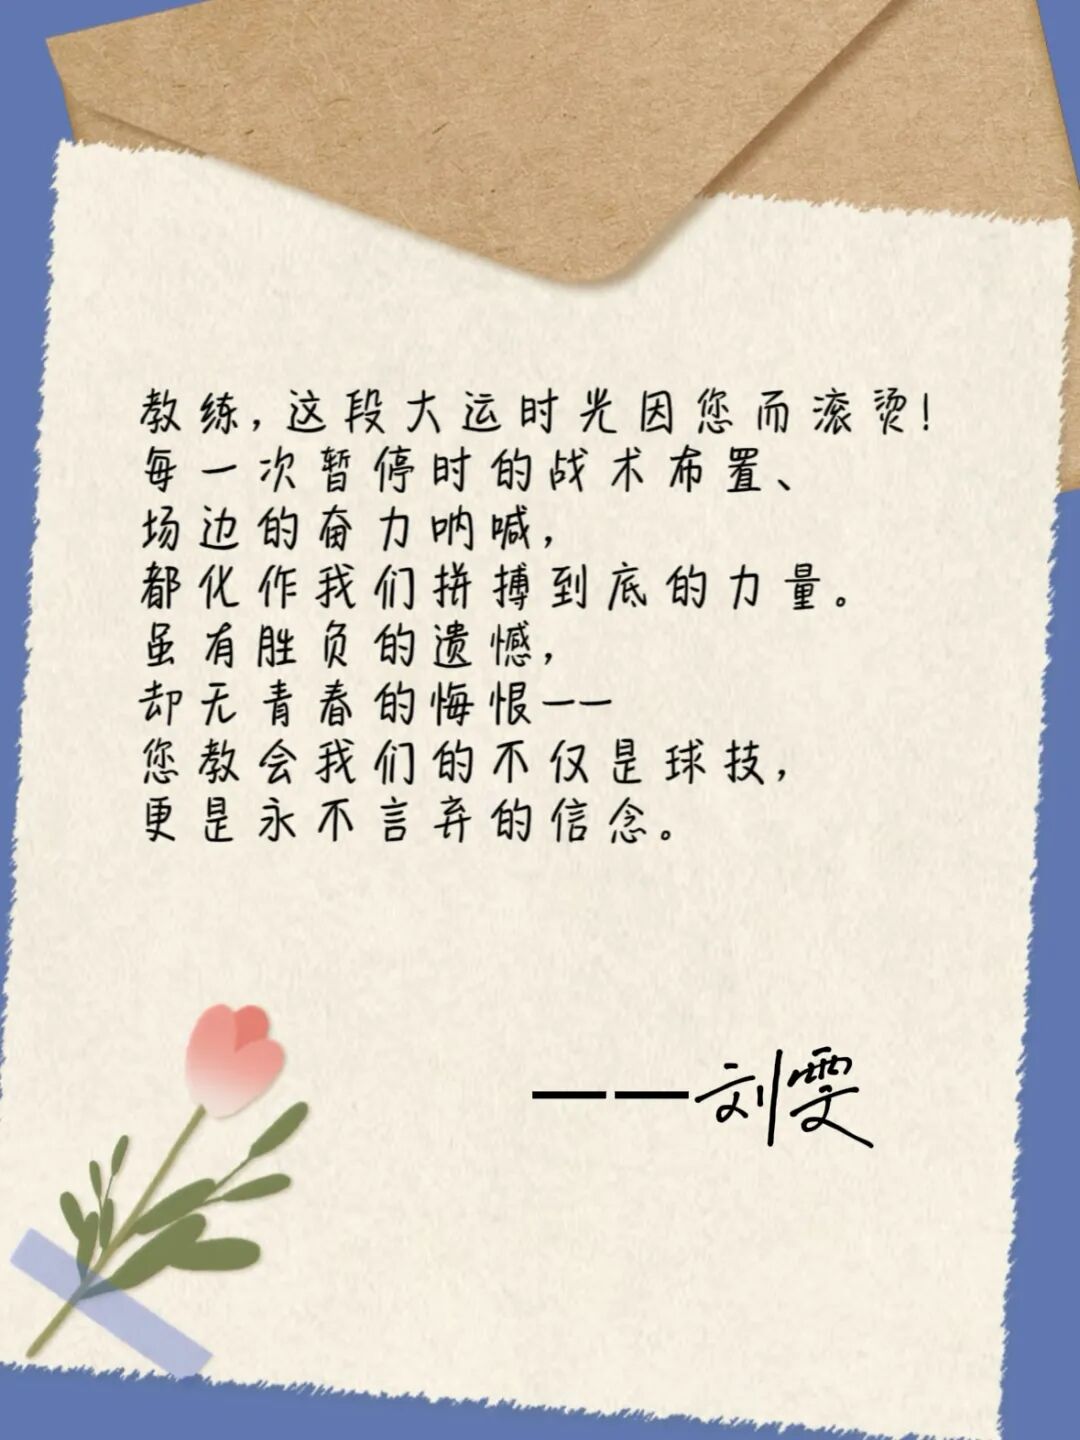 教练,这段大运时光因您而滚烫!
每一次暂停时的战术布置、
场边的奋力呐喊,
都化作我们拼搏到底的力量。
虽有胜负的遗憾,
却无青春的悔恨——
您教会我们的不仅是球技,
更是永不言弃的信念。
——刘雯